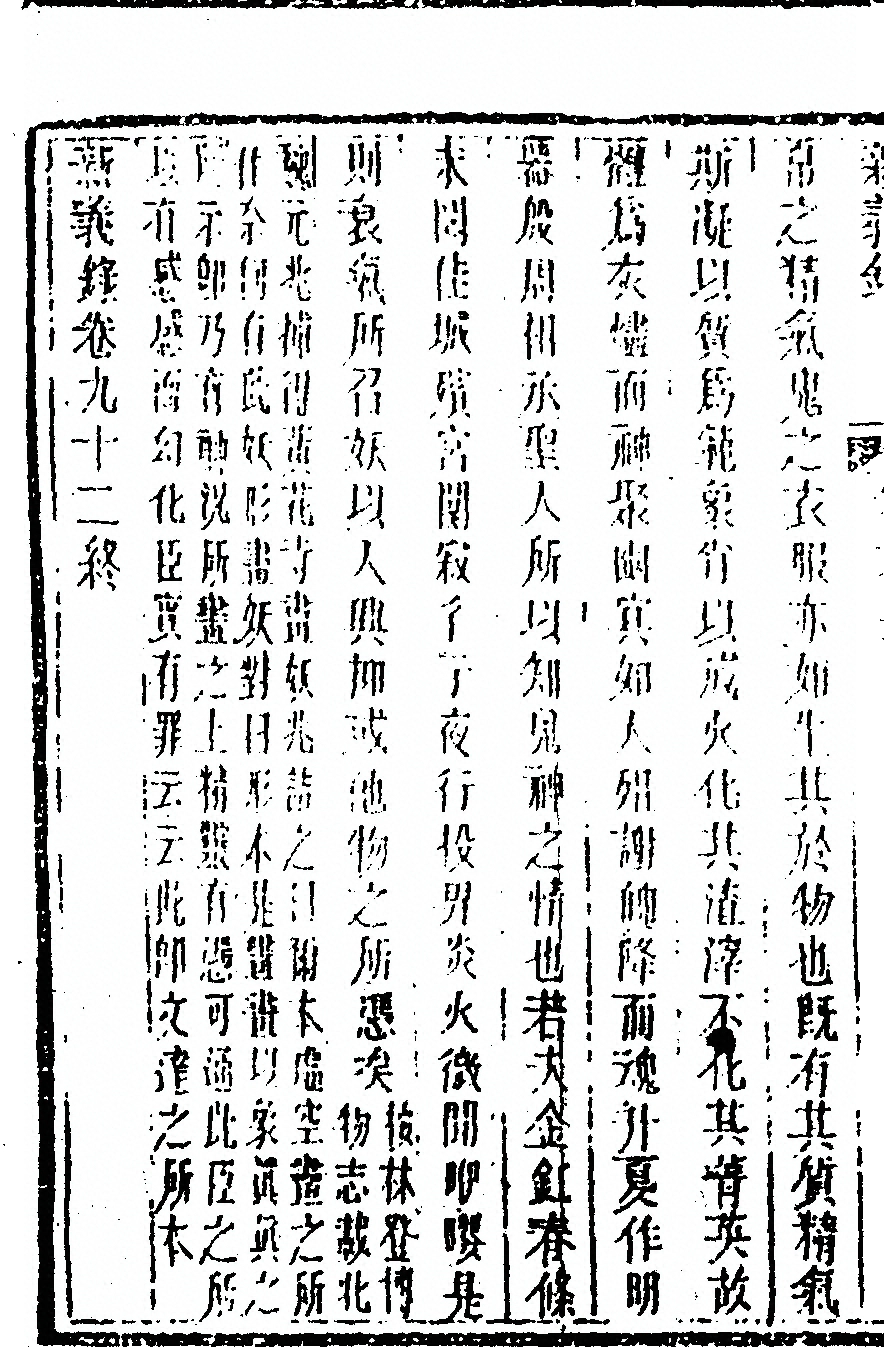 帛之精氣鬼之衣服亦如生其於物也旣有其質精氣
斯凝以質爲軀象肖以成火化其渣滓不化其菁英故
雖爲灰燼而神聚幽冥如人殂謝魄降而魂升夏作明
器殷周相承聖人所以知鬼神之情也若夫金釭春條
未閟佳城殯宮闃寂了了夜行投畀炎火微聞咿嚶是
則衰氣所召妖以人興抑或他物之所憑矣
按林登博
物志載北
魏元兆捕得黃花寺畫妖兆詰之曰爾本虛空畫之所
作奈何有此妖形畫妖對曰形本是畫畫以象眞眞之
所示卽乃有神況所畫之上精靈有憑可通此臣之所
以有感感而幻化臣實有罪云云此卽文達之所本
燕義錄卷九十二終